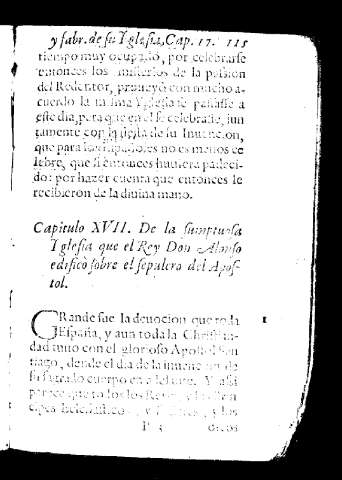 y fabr. de su Iglesia, Cap. 17. 115
tiempo muy ocupado, por celebrarse
entonces los misterios de la passion
del Redentor, proueyò con mucho a-
cuerdo la misma Yglesia se passasse a
este dia, para que en el se celebrasse, jun
tamente con la fiesta de su Inuencion,
que para los no es menos ce
lebre, que si entonces huuiera padeci-
do: por hazer cuenta que entonces le
recibieron de la diuina mano.
Capitulo XVII. De la sumptuosa
Iglesia que el Rey Don Alonso
edificò sobre el sepulcro del Apos-
tol.
GRande fue la deuocion que toda 1
España, y aun toda la Christian-
dad tuuo con el glorioso Apostol San-
tiago, desde el dia de la inuencion de
su sagrado cuerpo en adelante. Y assi
parece que todos los Reyes
cipes y los
P 3 otros